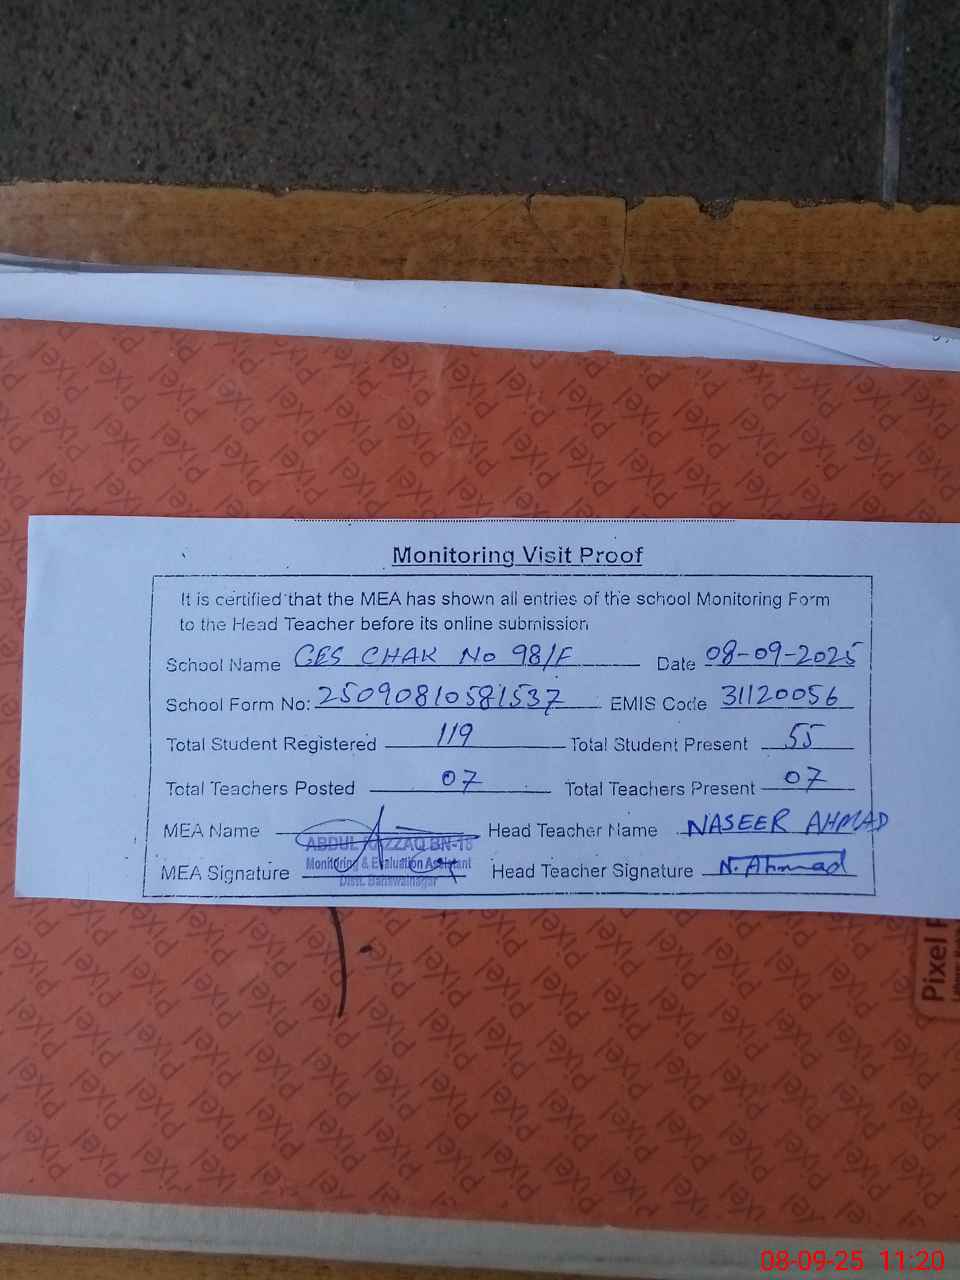 Monitoring Visit Proof
It is certified that the MEA has shown all entries of the school Monitoring Form
to the Head Teacher before its online submission
School Name GES CHAK No 98/F Date 08-09-2025
School Form No: 25090810581537 EMIS Code 31120056
Total Student Registered 119 Total Student Present 55
Total Teachers Posted 07 Total Teachers Present 07
MEA Name ABDUL RAZZAQ BN-15 Head Teacher Name NASEER AHMAD
Monitoring & Evaluation Assistant
MEA Signature Head Teacher Signature N. Ahmad
Distt. Bahawalnagar
Pixel
08-09-25 11:20